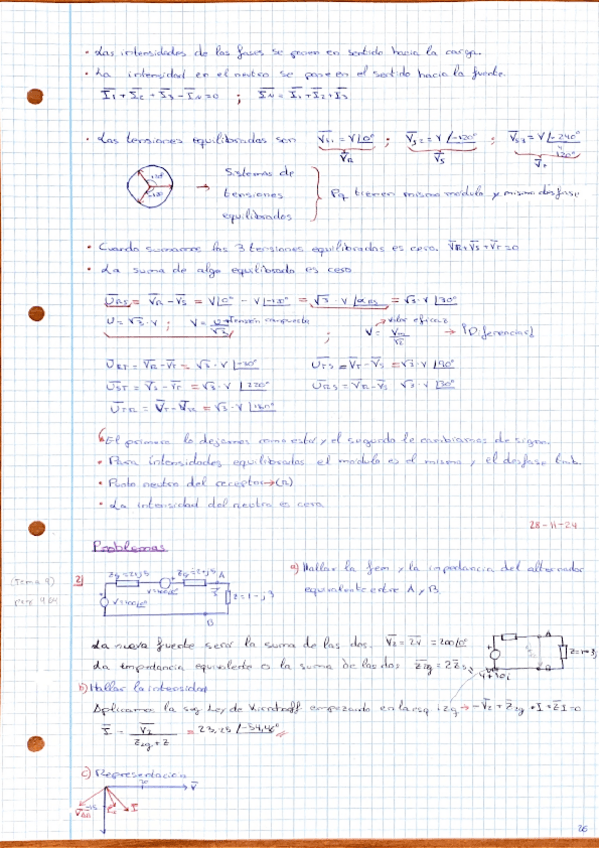 • Las intensidades de las fases se ponen en sentido hacia la carga.
• La intensidad en el neutro se pone en el sentido hacia la fuente.
I̅₁ + I̅₂ + I̅₃ - I̅N = 0 ; I̅N = I̅₁ + I̅₂ + I̅₃
• Las tensiones equilibradas son V̅s₁ = V|0° ; V̅s₂ = V/-120° ; V̅s₃ = V/-240°
V̅R V̅S 120° V̅T
→ Sistemas de
tensiones
equilibradas
Pq tienen mismo modulo y mismo desfase
• Cuando sumamos las 3 tensiones equilibradas es cero. V̅R + V̅S + V̅T = 0
• La suma de algo equilibrado es cero
U̅RS = V̅R - V̅S = V|0° - V|-120° = √3 · V |αRS = √3 · V |30°
U = √3 · V ; tensión compuesta ; valor eficaz → [Diferencias]
U̅RT = V̅R - V̅T = √3 · V |-30° U̅TS = V̅T - V̅S = √3 · V |90°
U̅ST = V̅S - V̅T = √3 · V U̅RS = V̅R - V̅S √3 · V |30°
U̅TR = V̅T - V̅R = √3 · V
El primero lo dejamos como esta y el segundo le cambiamos de signo.
• Para intensidades equilibradas el modulo es el mismo y el desfase tmb.
• Punto neutro del receptor → (n)
• La intensidad del neutro es cero
28-11-24
Problemas
(Tema 9)
2) Zg = 2+j5 Zg = 2+j5 A
a) Hallar la fem y la impedancia del alternador
equivalente entre A y B.
V = 100|0° I̅ Z = 1-j3
B
La nueva fuente será la suma de las dos. V̅₂ = 2V̅ = 200|0°
La impedancia equivalente es la suma de las dos Z̅2g = 2Z̅g
4+10i
A
B
b) Hallar la intensidad
Aplicamos la seg Ley de Kirchoff empezando en la esq izq → -V̅₂ + Z̅2g · I + Z̅I = 0
I̅ = V̅₂ / Z2g + Z = 23,25 /-54,46°
c) Representación
V̅
I
26